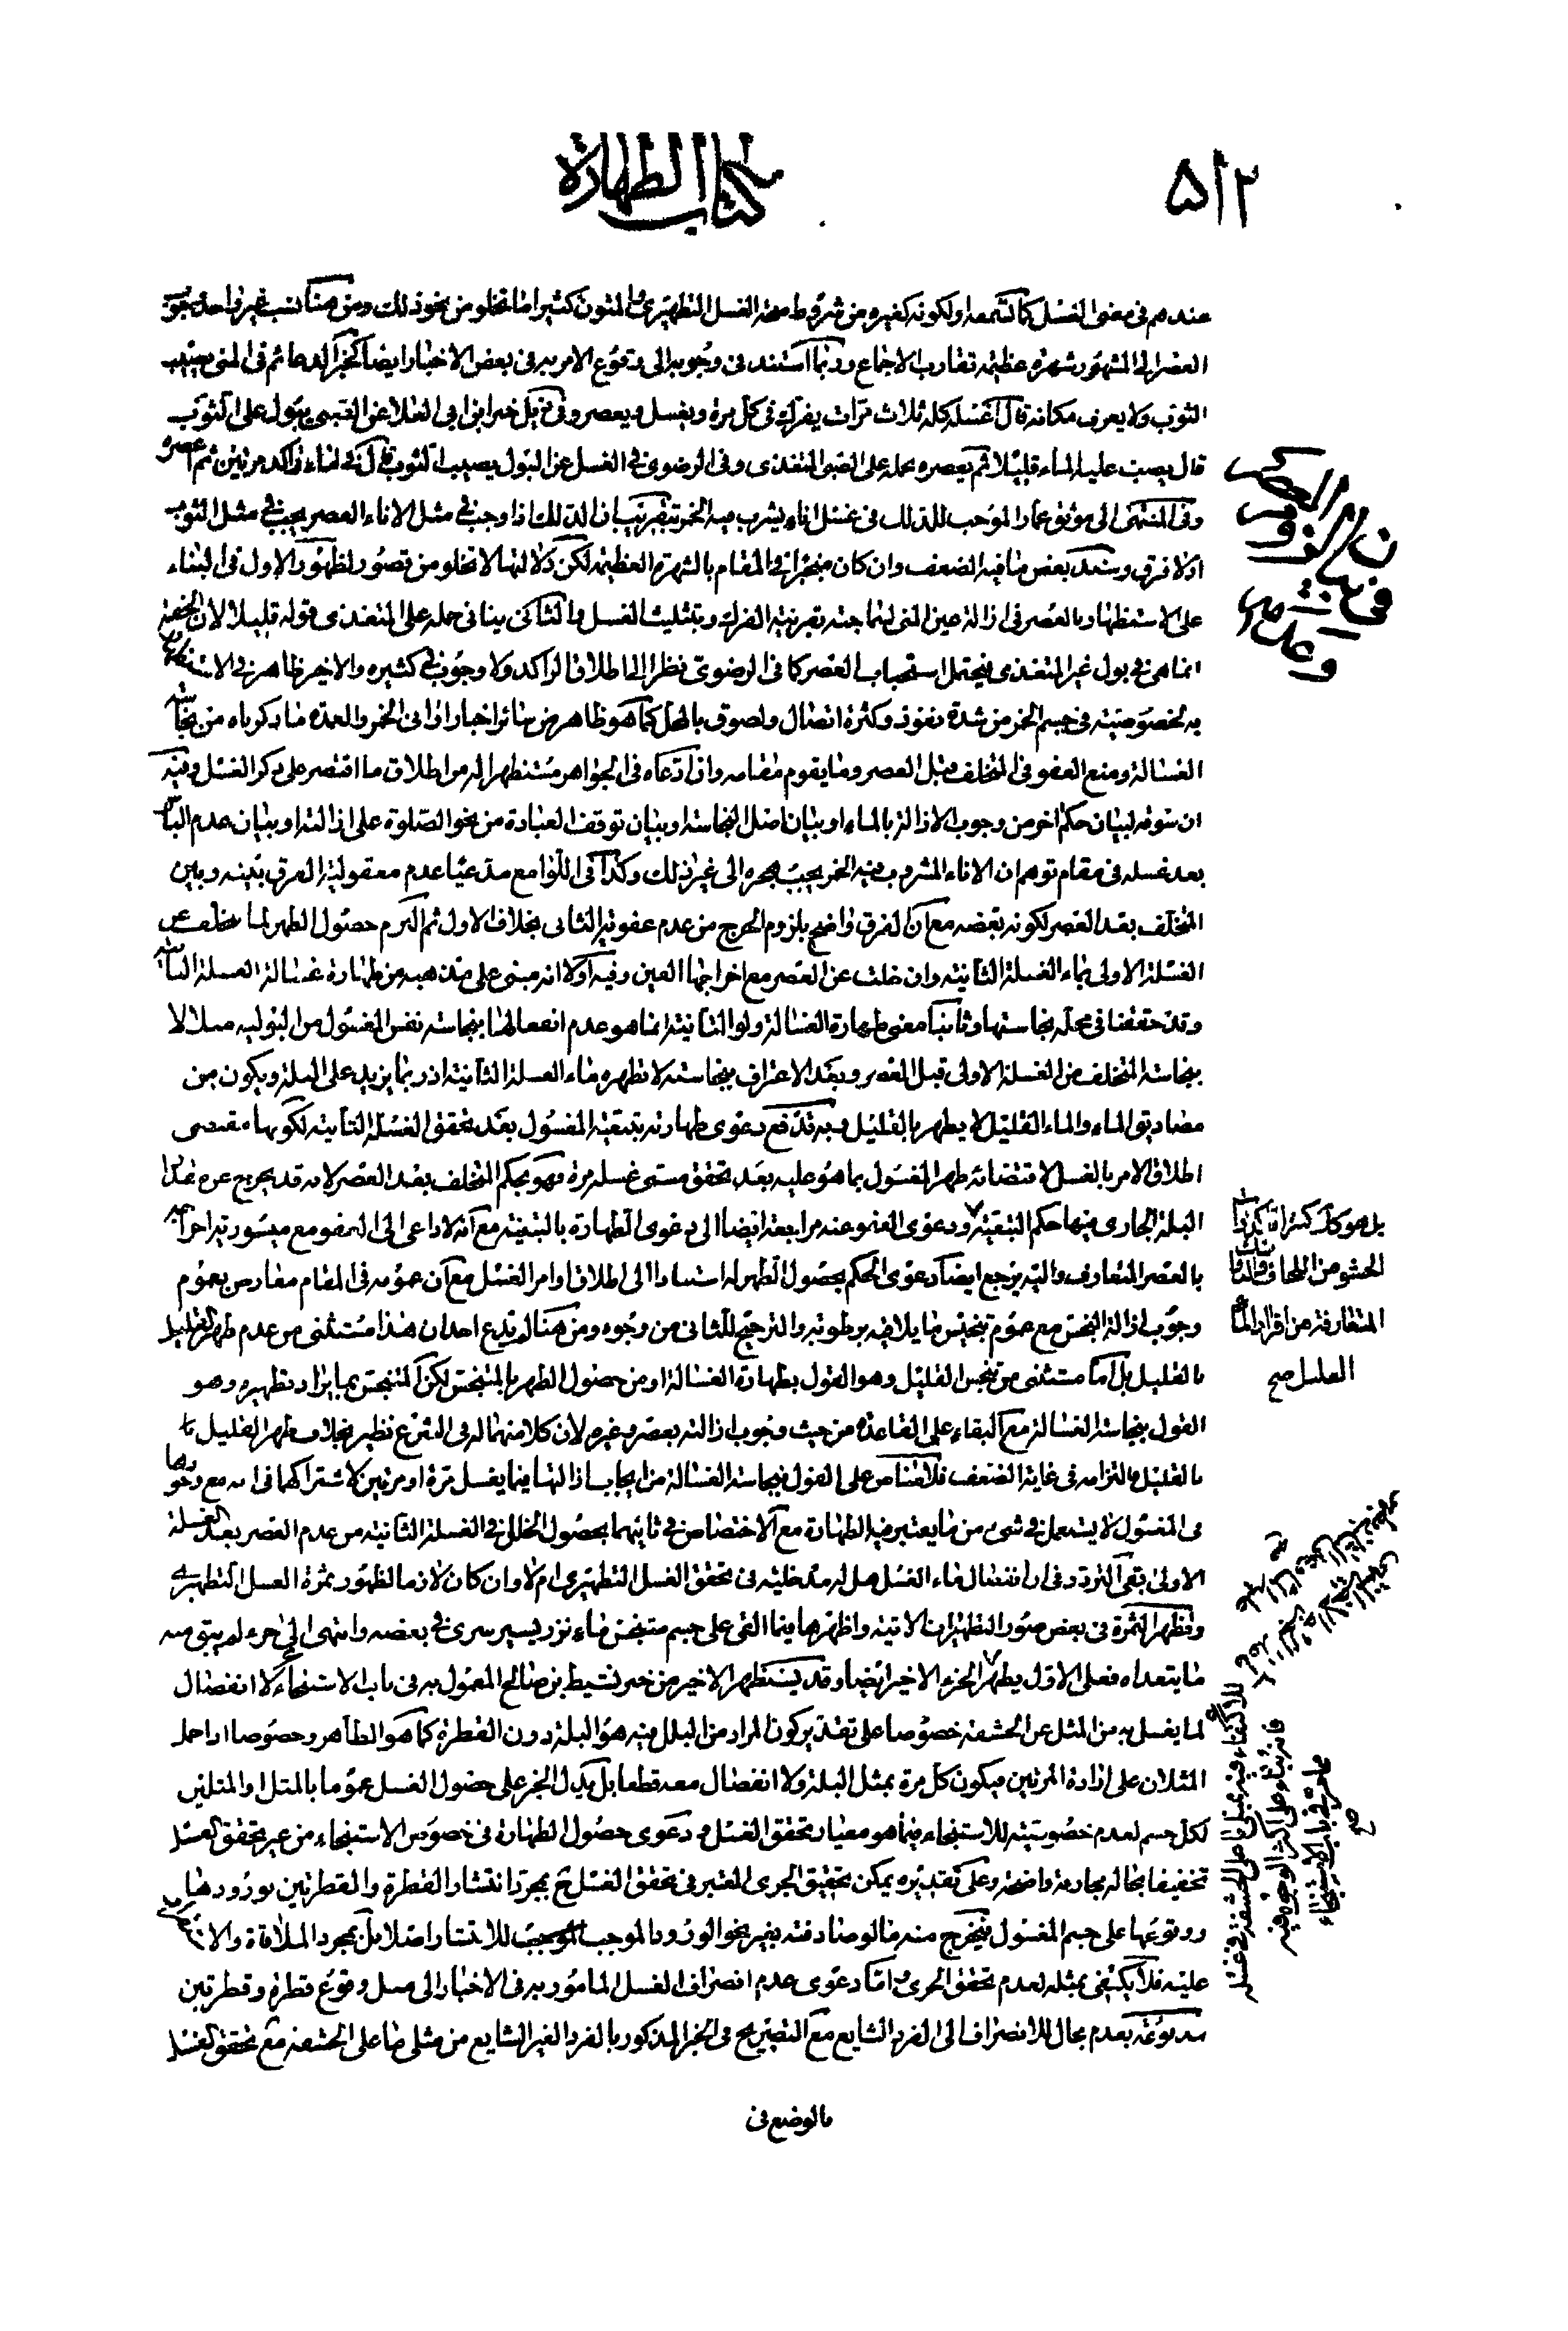 ٥١٢
كتاب الطهارة
عندهم في معنى الغسل كما تسمعه او لكونه كغيره من شروط صحة الغسل التطهيري والمتون كثيرا ما تخلو من نحو ذلك ومن هنا نسب غير واحد وجوب
العصر الى المشهور شهرة عظيمة تقارب الاجماع وربما استند في وجوبه الى وقوع الامر به في بعض الاخبار ايضا كخبر الدعائم في المني يصيب
الثوب ولا يعرف مكانه قال اغسله كله ثلاث مرات يفرك في كل مرة ويغسل ويعصر وفي ذيل خبر ابن ابي العلا عن الصبي يبول على الثوب
قال يصب عليه الماء قليلا ثم يعصره بحمله على الصبي المتغذي وفي الرضوي في الغسل عن البول يصيب الثوب قال في ماء راكد مرتين ثم اعصره
وفي المنتهى الى موثق عمار الموجب للدلك في غسل اناء يشرب فيه الخمر بتقريب ان الدلك اذا وجب في مثل الاناء العصر يجب في مثل الثوب
اذ لا فرق وسند بعض ما فيه الضعف وان كان منجبرا في المقام بالشهرة العظيمة لكن دلالتها لا تخلو من قصور لظهور الاول في البناء
على الاستظهار بالعصر في ازالة عين المني لثماجته بقرينة الفرك وبتثليث الغسل والثاني ينافي حمله على المتغذي قوله قليلا لان
انما هي في بول غير المتغذي فيحتمل استحباب العصر كما في الرضوي نظرا الى اطلاق الراكد ولا وجوب في كثيره والاخير ظاهر في الاستظهار
به لخصوصية في جسم الخمر من شدة نفوذ وكثرة اتصال ولصوق بالمحل كما هو ظاهر من سائر اخبار اواني الخمر والعمدة ما ذكرناه من نجاسة
الغسالة ومنع العفو في المتخلف قبل العصر وما يقوم مقامه وان ادعاه في الجواهر مستظهرا له من اطلاق ما اقتصر على ذكر الغسل وفيه
ان سوقه لبيان حكم اخر من وجوب الازالة بالماء او بيان اصل النجاسة او بيان توقف العبادة من نحو الصلوة على ازالته او بيان عدم الباس
بعد غسله في مقام توهم ان الاناء المشروب فيه الخمر يجب هجره الى غير ذلك وكذا في اللوامع مدعيا عدم معقولية الفرق بينه وبين
المتخلف بعد العصر لكونه بعضه مع ان الفرق واضح بلزوم الحرج من عدم عفوية الثاني بخلاف الاول ثم التزم حصول الطهر لما تخلف عن
الغسلة الاولى بماء الغسلة الثانية وان خلت عن العصر مع اخراجها العين وفيه اولا انه مبني على مذهبه من طهارة غسالة الغسلة الثانية
وقد حققنا في محله نجاستها وثانيا معنى طهارة الغسالة ولو الثانية انما هو عدم انفعالها بنجاسة نفس المغسول من البولية مثلا لا
بنجاسة المتخلف من الغسلة الاولى قبل العصر وبعد الاعتراف بنجاسته لا تطهره ماء الغسلة الثانية اذ ربما يزيد على البلة ويكون من
مصاديق الماء والماء القليل لا يطهر بالقليل وبه تندفع دعوى طهارته بتبعية المغسول بعد تحقق الغسلة الثانية لكونها مقتضى
اطلاق الامر بالغسل لاقتضائه طهر المغسول بما هو عليه بعد تحقق مسمى غسله مرة وهو بحكم المتخلف بعد العصر لانه قد يخرج عن
البلة الجاري فيها حكم التبعية ودعوى العفو عنه مرابعة ايضا الى دعوى الطهارة بالتبعية مع انه لا داعي الى العفو مع ميسورية اخراجه
بالعصر المتعارف واليه يرجع ايضا دعوى الحكم بحصول الطهر له استنادا الى اطلاق اوامر الغسل مع ان عمومه في المقام معارض بعموم
وجوب ازالة النجس مع عموم تنجيس ما يلاقيه برطوبة والترجيح للثاني من وجوه ومن هنا لم يدع احد ان هذا مستثنى من عدم طهر القليل
بالقليل بل اما مستثنى من تنجس القليل وهو القول بطهارة الغسالة او من حصول الطهر بالمتنجس لكن المتنجس بما يراد تطهيره وهو
القول بنجاسة الغسالة مع البقاء على القاعدة من حيث وجوب ازالته بعصر وغيره لان كلا منهما له في الشرع نظير بخلاف طهر القليل
بالقليل فالتزامه في غاية الضعف فلا مناص على القول بنجاسة الغسالة من ايجاب ازالتها فيما يغسل مرة او مرتين لاشتراكهما في انه مع وجودها
في المغسول لا يستعمل في شيء من ما يعتبر فيه الطهارة مع الاختصاص في ثانيهما بحصول الخلل في الغسلة الثانية من عدم العصر بعد الغسلة
الاولى بقي التردد في ان انفصال ماء الغسل هل له مدخلية في تحقق الغسل التطهيري ام لا وان كان لازما لظهور ثمرة الغسل التطهيري
وتظهر الثمرة في بعض صور التطهيرات الاتية واظهرها فيما القي على جسم متنجس ماء نزر يسير سرى في بعضه وانتهى الى جزء لم يبق منه
ما يتعداه فعلى الاول يطهر الجزء الاخير ايضا وقد يستظهر الاخير من خبر نشيط بن صالح المعمول به في باب الاستنجاء اذ لا انفصال
لما يغسل به من المثل عن الحشفة خصوصا على تقدير كون المراد من البلل فيه هو البلة دون القطرة كما هو الظاهر وخصوصا اذا حمل
المثلان على ارادة المرتين فيكون كل مرة بمثل البلة ولا انفصال معه قطعا بل يدل الخبر على حصول الغسل عموما بالمثل او المثلين
لكل جسم لعدم خصوصية للاستنجاء فيما هو معيار تحقق الغسل ودعوى حصول الطهارة في خصوص الاستنجاء من غير تحقق الغسل
تخفيفا بحاله مجازفة واضحة وعلى تقديره يمكن تحقيق الجري المعتبر في تحقق الغسل ح بمجرد انتشار القطرة والقطرتين بورودها
ووقوعها على جسم المغسول فيخرج منه ما لو صادفته بغير نحو الورود الموجب للانتشار اصلا بل بمجرد الملاقاة
عليه فلا يكتفى بمثله لعدم تحقق الجري واما دعوى عدم انصراف الغسل المامور به في الاخبار الى مثل وقوع قطرة وقطرتين
مدفوعة بعدم مجال للانصراف الى الفرد الشايع مع التصريح في الخبر المذكور بالفرد الغير الشايع من مثلي ما على الحشفة مع تحقق الغسل
بالوضع في
في بيان لزوم العصر
بل هو كك كثيرا
الحشو من اللحاف
المتعارفة من افراد الماء
القليل صح
للاكتفاء فيه بمثلي ما على الحشفة في غسله
فانه بناء على اكثر الوجوه فيه
ما مر في باب الاستنجاء
صح